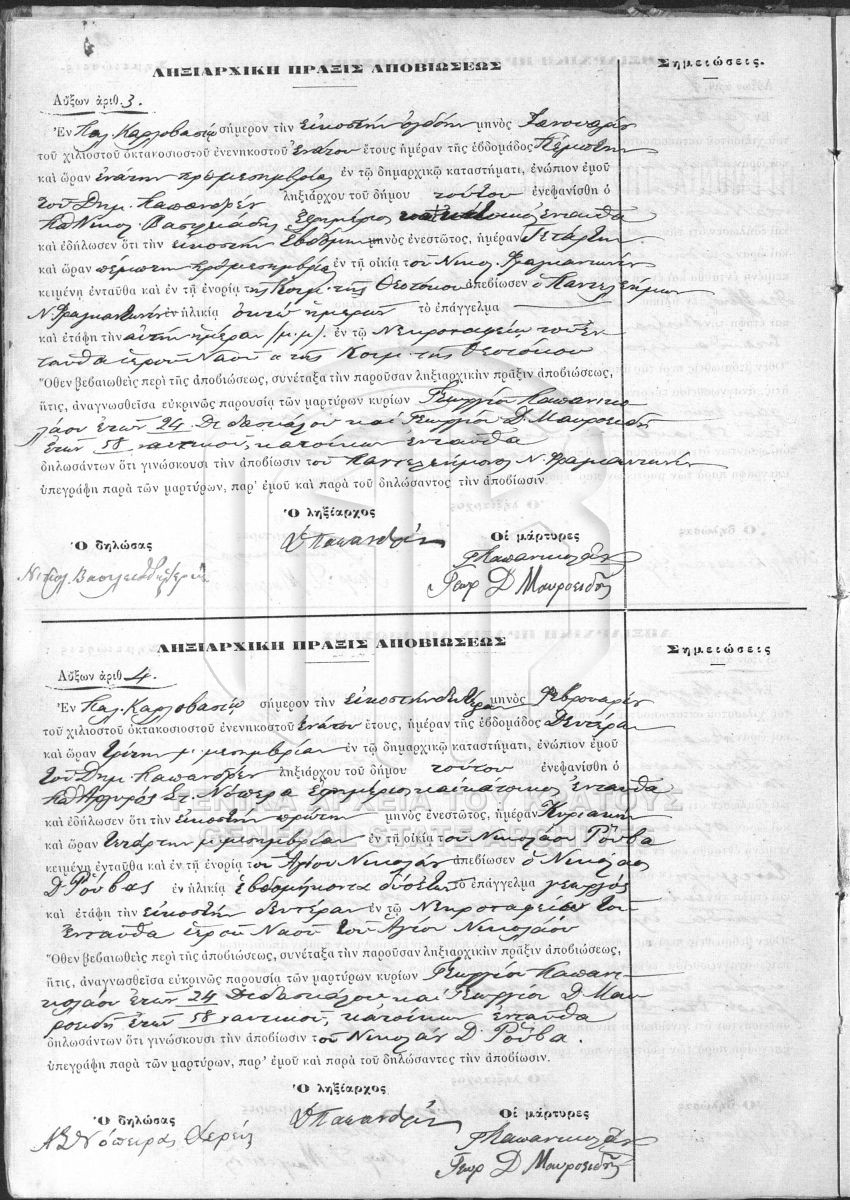 ΛΗΞΙΑΡΧΙΚΗ ΠΡΑΞΙΣ ΑΠΟΒΙΩΣΕΩΣ
Σημειώσεις.
Αὔξων ἀριθ. 3.
Ἐν Παλ. Καρλοβασίῳ σήμερον τὴν εἰκοστὴν ὀγδόην μηνὸς Ἰανουαρίου
τοῦ χιλιοστοῦ ὀκτακοσιοστοῦ ἐνενηκοστοῦ ἐνάτου ἔτους ἡμέραν τῆς ἑβδομάδος Πέμπτην
καὶ ὥραν ἐνάτην προμεσημβρίας ἐν τῷ δημαρχικῷ καταστήματι, ἐνώπιον ἐμοῦ
τοῦ Δημ. ληξιάρχου τοῦ δήμου τούτου ἐνεφανίσθη ὁ
Νικολ. Βασιλειάδης Ἐφημέριος ἐνταῦθα
καὶ ἐδήλωσεν ὅτι τὴν εἰκοστὴν ἑβδόμην μηνὸς ἐνεστῶτος, ἡμέραν Τετάρτην
καὶ ὥραν πέμπτην προμεσημβρίας ἐν τῇ οἰκίᾳ τοῦ Νικολ.
κειμένῃ ἐνταῦθα καὶ ἐν τῇ ἐνορίᾳ τῆς Κοιμ. τῆς Θεοτόκου ἀπεβίωσεν ὁ Παντελεήμων
Ν. ἐν ἡλικίᾳ ὀκτὼ ἡμερῶν τὸ ἐπάγγελμα
καὶ ἐτάφη τὴν αὐτὴν ἡμέραν (μ.μ). ἐν τῷ Νεκροταφείῳ τοῦ ἐν-
ταῦθα ἱεροῦ Ναοῦ τῆς Κοιμ. τῆς Θεοτόκου
Ὅθεν βεβαιωθεὶς περὶ τῆς ἀποβιώσεως, συνέταξα τὴν παροῦσαν ληξιαρχικὴν πρᾶξιν ἀποβιώσεως,
ἥτις, ἀναγνωσθεῖσα εὐκρινῶς παρουσίᾳ τῶν μαρτύρων κυρίων Γεωργίου Παπανικο-
λάου ἐτῶν 24 Διδασκάλου καὶ Γεωργίου Δ. Μαυροειδῆ
ἐτῶν 58 ναυτικοῦ, κατοίκων ἐνταῦθα
δηλωσάντων ὅτι γινώσκουσι τὴν ἀποβίωσιν τοῦ Παντελεήμονος Ν.
ὑπεγράφη παρὰ τῶν μαρτύρων, παρ' ἐμοῦ καὶ παρὰ τοῦ δηλώσαντος τὴν ἀποβίωσιν
Ὁ ληξίαρχος
Ὁ δηλώσας
Οἱ μάρτυρες
Γ Παπανικολάου
Γεωρ Δ Μαυροειδῆς
ΛΗΞΙΑΡΧΙΚΗ ΠΡΑΞΙΣ ΑΠΟΒΙΩΣΕΩΣ
Σημειώσεις
Αὔξων ἀριθ. 4.
Ἐν Παλ. Καρλοβασίῳ σήμερον τὴν εἰκοστὴν δευτέραν μηνὸς Φεβρουαρίου
τοῦ χιλιοστοῦ ὀκτακοσιοστοῦ ἐνενηκοστοῦ ἐνάτου ἔτους, ἡμέραν τῆς ἑβδομάδος Δευτέραν
καὶ ὥραν τρίτην μ. μεσημβρίαν ἐν τῷ δημαρχικῷ καταστήματι, ἐνώπιον ἐμοῦ
τοῦ Δημ. ληξιάρχου τοῦ δήμου τούτου ἐνεφανίσθη ὁ
Ἐφημέριος καὶ κάτοικος ἐνταῦθα
καὶ ἐδήλωσεν ὅτι τὴν εἰκοστὴν πρώτην μηνὸς ἐνεστῶτος, ἡμέραν Κυριακὴν
καὶ ὥραν τετάρτην μ. μεσημβρίαν ἐν τῇ οἰκίᾳ τοῦ Νικολάου Ρούβα
κειμένῃ ἐνταῦθα καὶ ἐν τῇ ἐνορίᾳ τοῦ Ἁγίου Νικολάου ἀπεβίωσεν ὁ Νικόλαος
Δ. Ρούβας ἐν ἡλικίᾳ ἑβδομήκοντα δύο ἐτῶν τὸ ἐπάγγελμα γεωργός
καὶ ἐτάφη τὴν εἰκοστὴν δευτέραν ἐν τῷ Νεκροταφείῳ τοῦ
ἐνταῦθα ἱεροῦ Ναοῦ τοῦ Ἁγίου Νικολάου
Ὅθεν βεβαιωθεὶς περὶ τῆς ἀποβιώσεως, συνέταξα τὴν παροῦσαν ληξιαρχικὴν πρᾶξιν ἀποβιώσεως,
ἥτις, ἀναγνωσθεῖσα εὐκρινῶς παρουσίᾳ τῶν μαρτύρων κυρίων Γεωργίου Παπανι-
κολάου ἐτῶν 24 Διδασκάλου καὶ Γεωργίου Δ. Μαυ-
ροειδῆ ἐτῶν 58 ναυτικοῦ, κατοίκων ἐνταῦθα
δηλωσάντων ὅτι γινώσκουσι τὴν ἀποβίωσιν τοῦ Νικολάου Δ. Ρούβα.
ὑπεγράφη παρὰ τῶν μαρτύρων, παρ' ἐμοῦ καὶ παρὰ τοῦ δηλώσαντες τὴν ἀποβίωσιν.
Ὁ ληξίαρχος
Ὁ δηλώσας
Οἱ μάρτυρες
Γ Παπανικολάου
Γεωρ Δ Μαυροειδῆς
ΓΕΝΙΚΑ ΑΡΧΕΙΑ ΤΟΥ ΚΡΑΤΟΥΣ
GENERAL STATE ARCHIVES